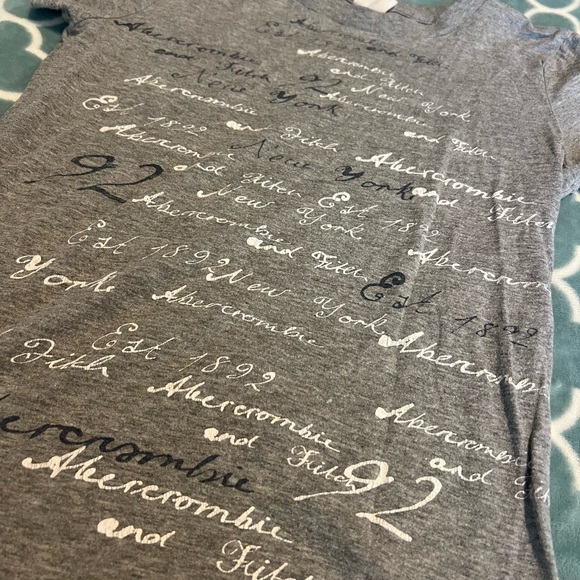 Abercrombie Est 1892
and Fitch 92 Abercrombie
New York and Fitch New York
Abercrombie Abercrombie
Est 1892 and Fitch and Fitch
Abercrombie New York Abercrombie
92 and Fitch Est 1892 and Fitch
New York
Abercrombie and Fitch Abercrombie
Est 1892 New York Est 1892
York Abercrombie Abercrombie
Est 1892
Fitch Abercrombie Abercrombie
and Fitch and
Abercrombie 92
Abercrombie
and Fitch